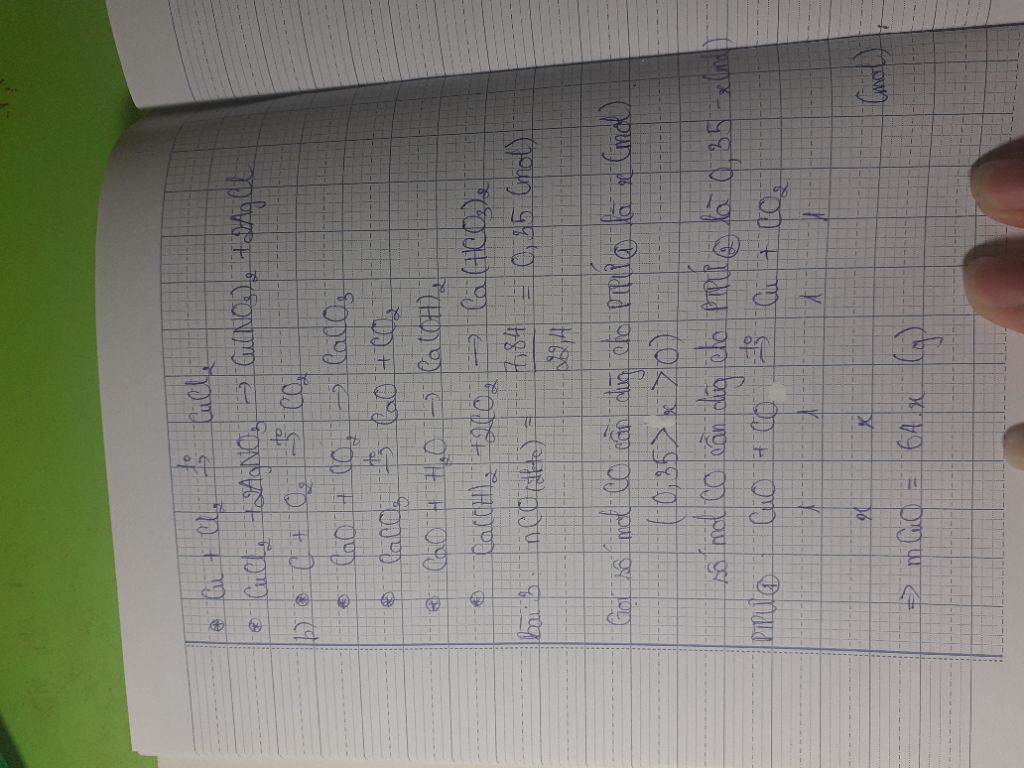 ⊛ Cu + Cl₂ —t°→ CuCl₂
⊛ CuCl₂ + 2AgNO₃ → Cu(NO₃)₂ + 2AgCl
b) ⊛ C + O₂ —t°→ CO₂
⊛ CaO + CO₂ → CaCO₃
⊛ CaCO₃ —t°→ CaO + CO₂
⊛ CaO + H₂O → Ca(OH)₂
⊛ Ca(OH)₂ + 2CO₂ → Ca(HCO₃)₂
Bài 3 nCO(đktc) = 7,84/22,4 = 0,35 (mol)
Gọi số mol CO cần dùng cho PTPƯ① là x (mol)
(0,35 > x > 0)
số mol CO cần dùng cho PTPƯ② là 0,35 - x (mol)
PTPƯ① CuO + CO —t°→ Cu + CO₂
1 1 1 1
x x (mol)
=> mCuO = 64x (g)